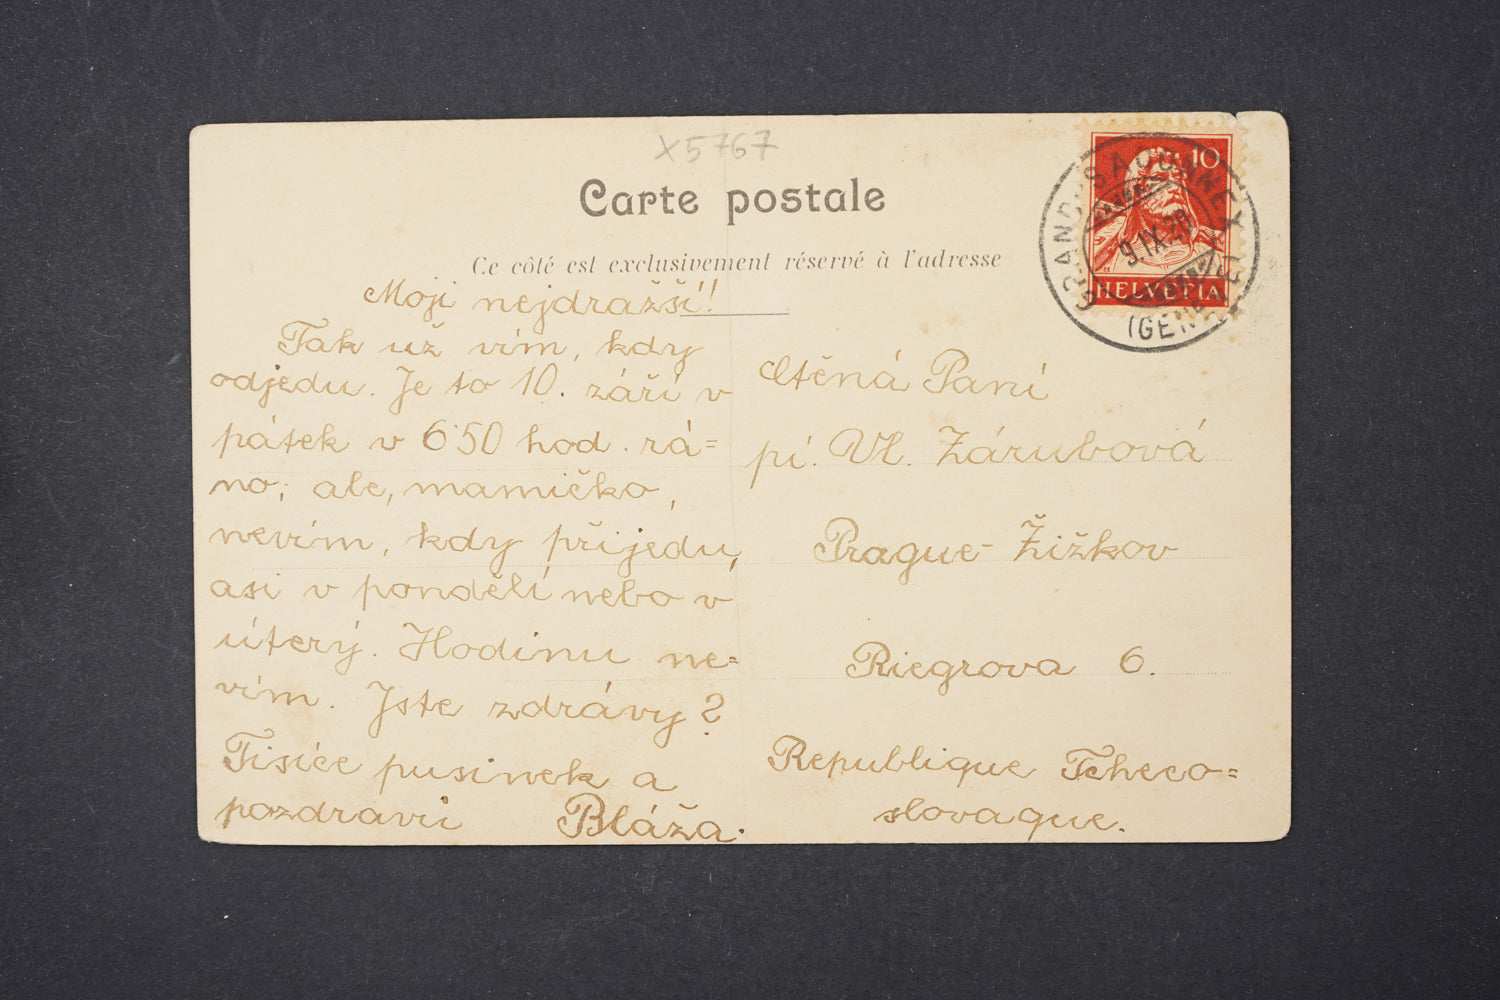 X5767
Carte postale
Ce côté est exclusivement réservé à l'adresse
Moji nejdražší!
Tak už vím, kdy
odjedu. Je to 10. září v
pátek v 6·50 hod. rá=
no; ale, mamičko,
nevím, kdy přijedu,
asi v pondělí nebo v
úterý. Hodinu ne=
vím. Jste zdrávy?
Tisíce pusinek a
pozdravů Bláža.
10
HELVETIA
GRAND-SACONNEX
9.IX.20
(GENÈVE)
Ctěná Paní
pí. Vl. Zárubová
Prague-Žižkov
Riegrova 6.
Republique Tcheco=
slovaque.